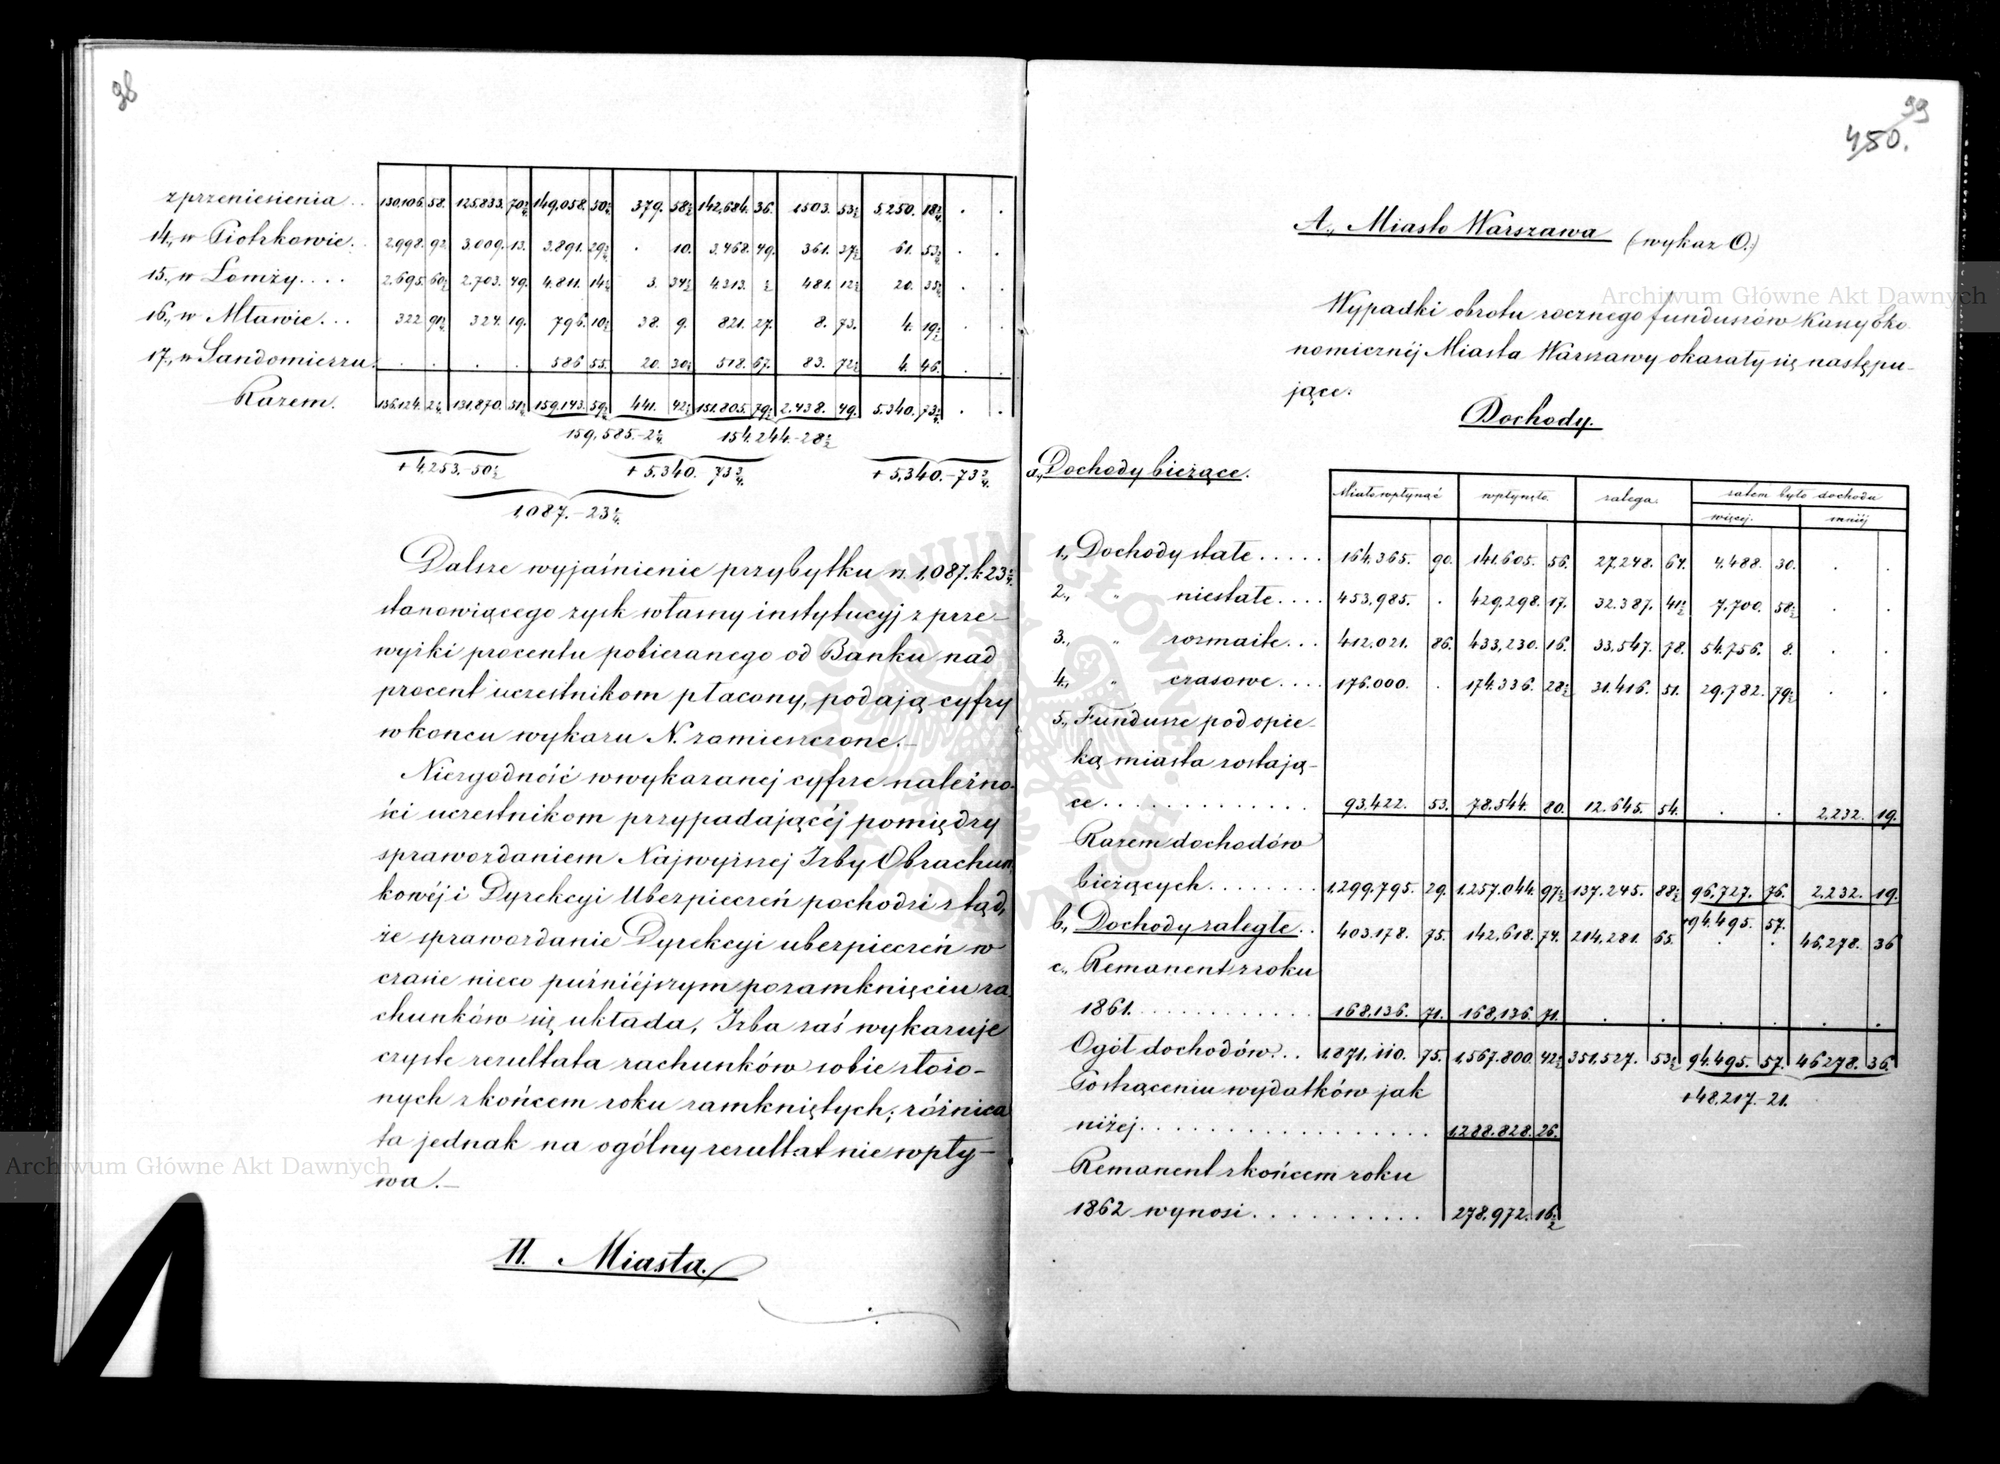 98
z przeniesienia . . 130,106. 58. 125.833. 70¾ 149,058. 50¾ 379. 58½ 142,684. 36. 1503. 53½ 5,250. 18¾ . .
14., w Piotrkowie. . 2998. 92. 3.009. 13. 3.891. 29¾ . 10. 3,468. 49. 361. 37½ 61. 53¾ . .
15., w Łomży. . . . 2.695. 60½ 2.703. 49. 4.811. 14¾ 3. 34½ 4.313. ½ 481. 12½ 20. 35¾ . .
16., w Mławie. . . 322. 91½ 324. 19. 796. 10½ 38. 9. 821. 27. 8. 73. 4. 19½ . .
17., w Sandomierzu. . . . . 586. 55. 20. 30½ 518. 67. 83. 72½ 4. 46. . .
Razem. 136,124. 2¼ 131,870. 51¾ 159,143. 59¾ 441. 42½ 151.805. 79¾ 2.438. 49. 5.340. 73¾ . .
159,585.-2¼ 154.244.-28½
+ 4.253.-50½ + 5.340.-73¾ + 5,340.-73¾
1,087.-23¼
Dalsze wyjaśnienie przybytku rs. 1,087. k. 23¼
stanowiącego zysk własny instytucyj z prze-
wyżki procentu pobieranego od Banku nad
procent uczestnikom płacony, podają cyfry
w końcu wykazu N. zamieszczone.-
Niezgodność w wykazanej cyfrze należno-
ści uczestnikom przypadającéj pomiędzy
sprawozdaniem Najwyższej Izby Obrachun-
kowéj i Dyrekcyi Ubezpieczeń pochodzi ztąd,
że sprawozdanie Dyrekcyi ubezpieczeń w
czasie nieco późniéjszym po zamknięciu ra-
chunków się układa, Izba zaś wykazuje
czyste rezultata rachunków sobie złożo-
nych z końcem roku zamkniętych; różnica
ta jednak na ogólny rezultat nie wpły-
wa.-
II. Miasta.
99
450.
A., Miasto Warszawa (wykaz O.)
Wypadki obrotu rocznego funduszów Kassy Eko-
nomicznéj Miasta Warszawy okazały się następu-
jące:
Dochody.
a., Dochody bieżące.
Miało wpłynąć wpłynęło. zalega. zatem było dochodu
więcej. mniéj
1., Dochody stałe . . . . . 164,365. 90. 141.605. 56. 27.248. 64. 4.488. 30. . .
2., " niestałe. . . . 453,985. . 429,298. 17. 32.387. 41½ 7.700. 58½ . .
3., " rozmaite. . . 412.021. 86. 433,230. 16. 33,547. 78. 54.756. 8. . .
4., " czasowe. . . . 176.000. . 174.336. 28½ 31.416. 51. 29.782. 79½ . .
5., Fundusze pod opie-
ką miasta zostają-
ce. . . . . . . . . . . . . 93.422. 53. 78.544. 80. 12.645. 54. . . 2,232. 19.
Razem dochodów
bieżących. . . . . . . . 1,299,795. 29. 1,257.044. 97½ 137.245. 88½ 96,727. 76. 2.232. 19.
+94.495. 57.
b., Dochody zaległe. . 403.178. 75. 142,618. 74. 214,281. 65. . . 46,278. 36
c., Remanent z roku
1861. . . . . . . . . . . . 168,136. 71. 168,136. 71. . . . . . .
Ogół dochodów. . . 1,871,110. 75. 1,567.800. 42½ 351,527. 53½ 94.495. 57. 46278. 36.
Po strąceniu wydatków jak +48.217.-21.
niżej. . . . . . . . . . . . . . . . . . 1,288.828. 26.
Remanent z końcem roku
1862 wynosi. . . . . . . . . . . 278.972. 16½
Archiwum Główne Akt Dawnych
Archiwum Główne Akt Dawnych